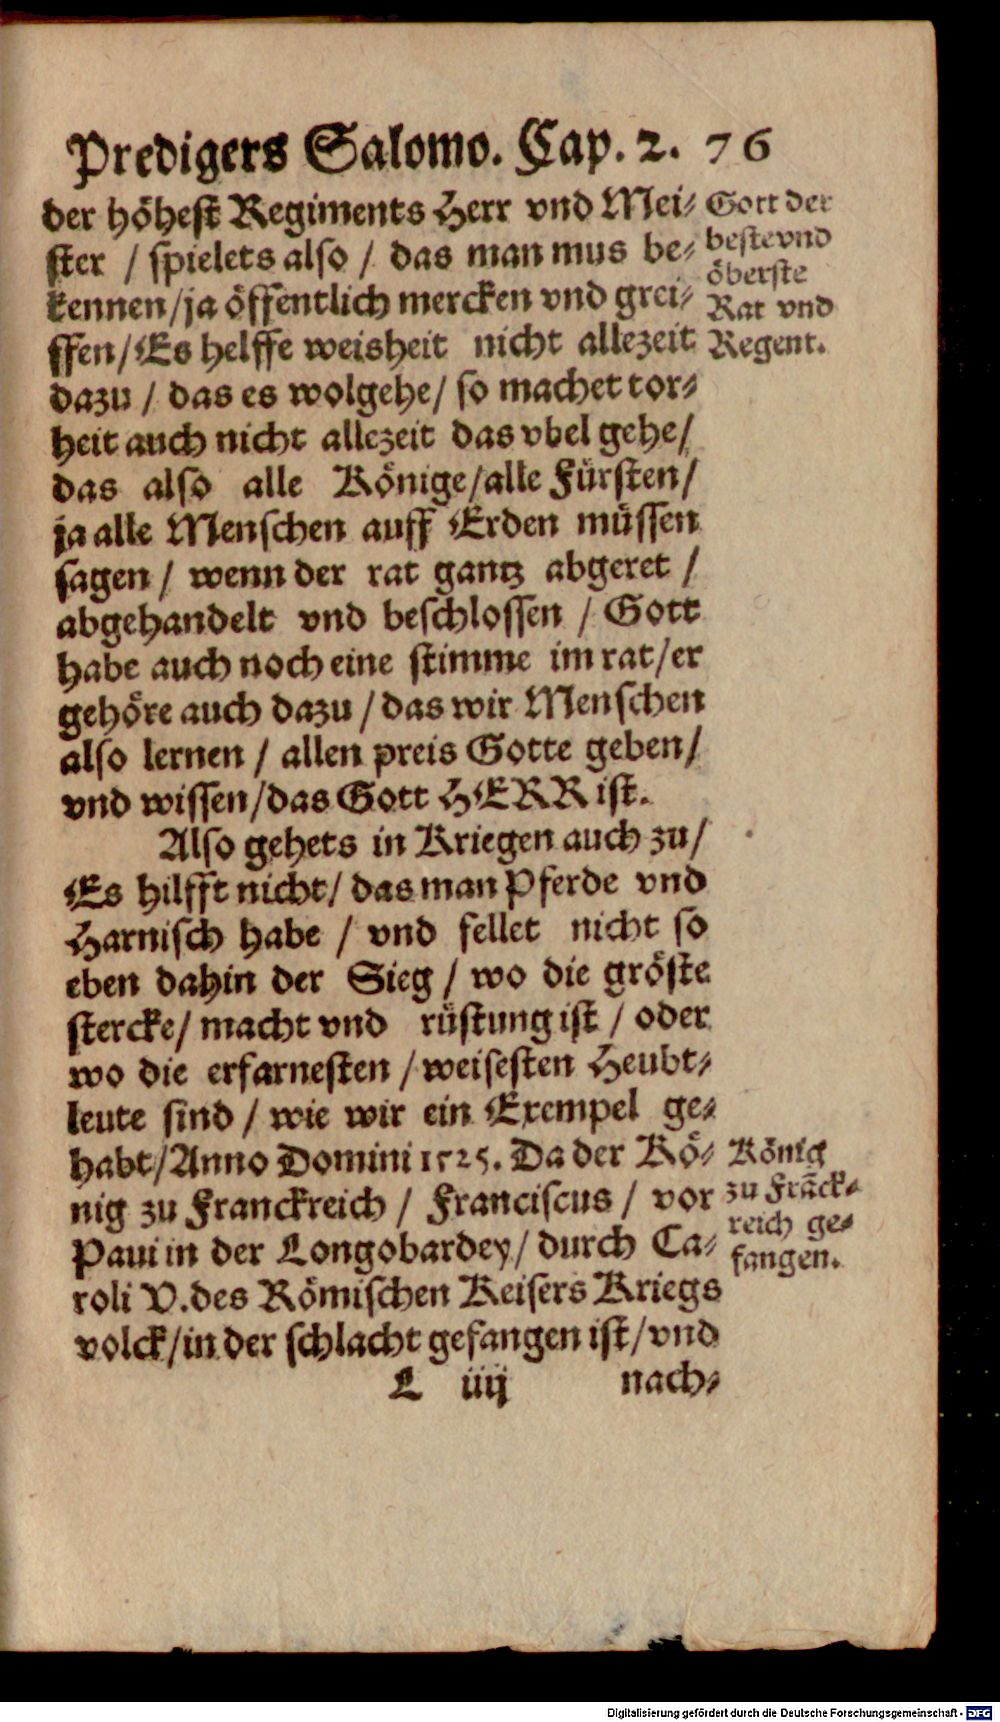 Predigers Salomo. Cap. 2. 76
der höhest Regiments Herr vnd Mei-
ster / spielets also / das man mus be-
kennen / ja öffentlich mercken vnd grei-
ffen / Es helffe weisheit nicht allezeit
dazu / das es wolgehe / so machet tor-
heit auch nicht allezeit das vbel gehe /
das also alle Könige / alle Fürsten /
ja alle Menschen auff Erden müssen
sagen / wenn der rat gantz abgeret /
abgehandelt vnd beschlossen / Gott
habe auch noch eine stimme im rat / er
gehöre auch dazu / das wir Menschen
also lernen / allen preis Gotte geben /
vnd wissen / das Gott HERR ist.
Also gehets in Kriegen auch zu /
Es hilfft nicht / das man Pferde vnd
Harnisch habe / vnd fellet nicht so
eben dahin der Sieg / wo die gröste
stercke / macht vnd rüstung ist / oder
wo die erfarnesten / weisesten Heubt-
leute sind / wie wir ein Exempel ge-
habt / Anno Domini 1525. Da der Kö-
nig zu Franckreich / Franciscus / vor
Paui in der Longobardey / durch Ca-
roli V. des Römischen Keisers Kriegs
volck / in der schlacht gefangen ist / vnd
L iiij nach-
Gott der
beste vnd
öberste
Rat vnd
Regent.
König
zu Frāck-
reich ge-
fangen.
Digitalisierung gefördert durch die Deutsche Forschungsgemeinschaft - DFG